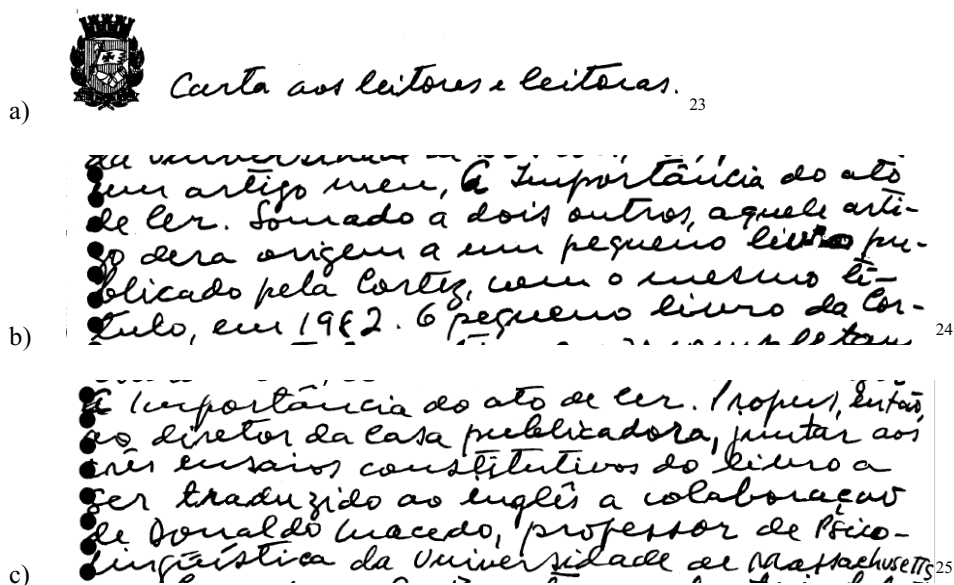 a) Carta aos leitores e leitoras. 23
da Universidade de
um artigo meu, A Importância do ato
de ler. Somado a dois outros, aquele arti-
go dera origem a um pequeno livro pu-
blicado pela Cortez, com o mesmo tí-
tulo, em 1982. O pequeno livro da Cor-
b) 24
A Importância do ato de ler. Propus, então,
ao diretor da casa publicadora, juntar aos
três ensaios constitutivos do livro a
ser traduzido ao inglês a colaboração
de Donaldo Macedo, professor de Psico-
lingüística da Universidade de Massachusetts 25
c)